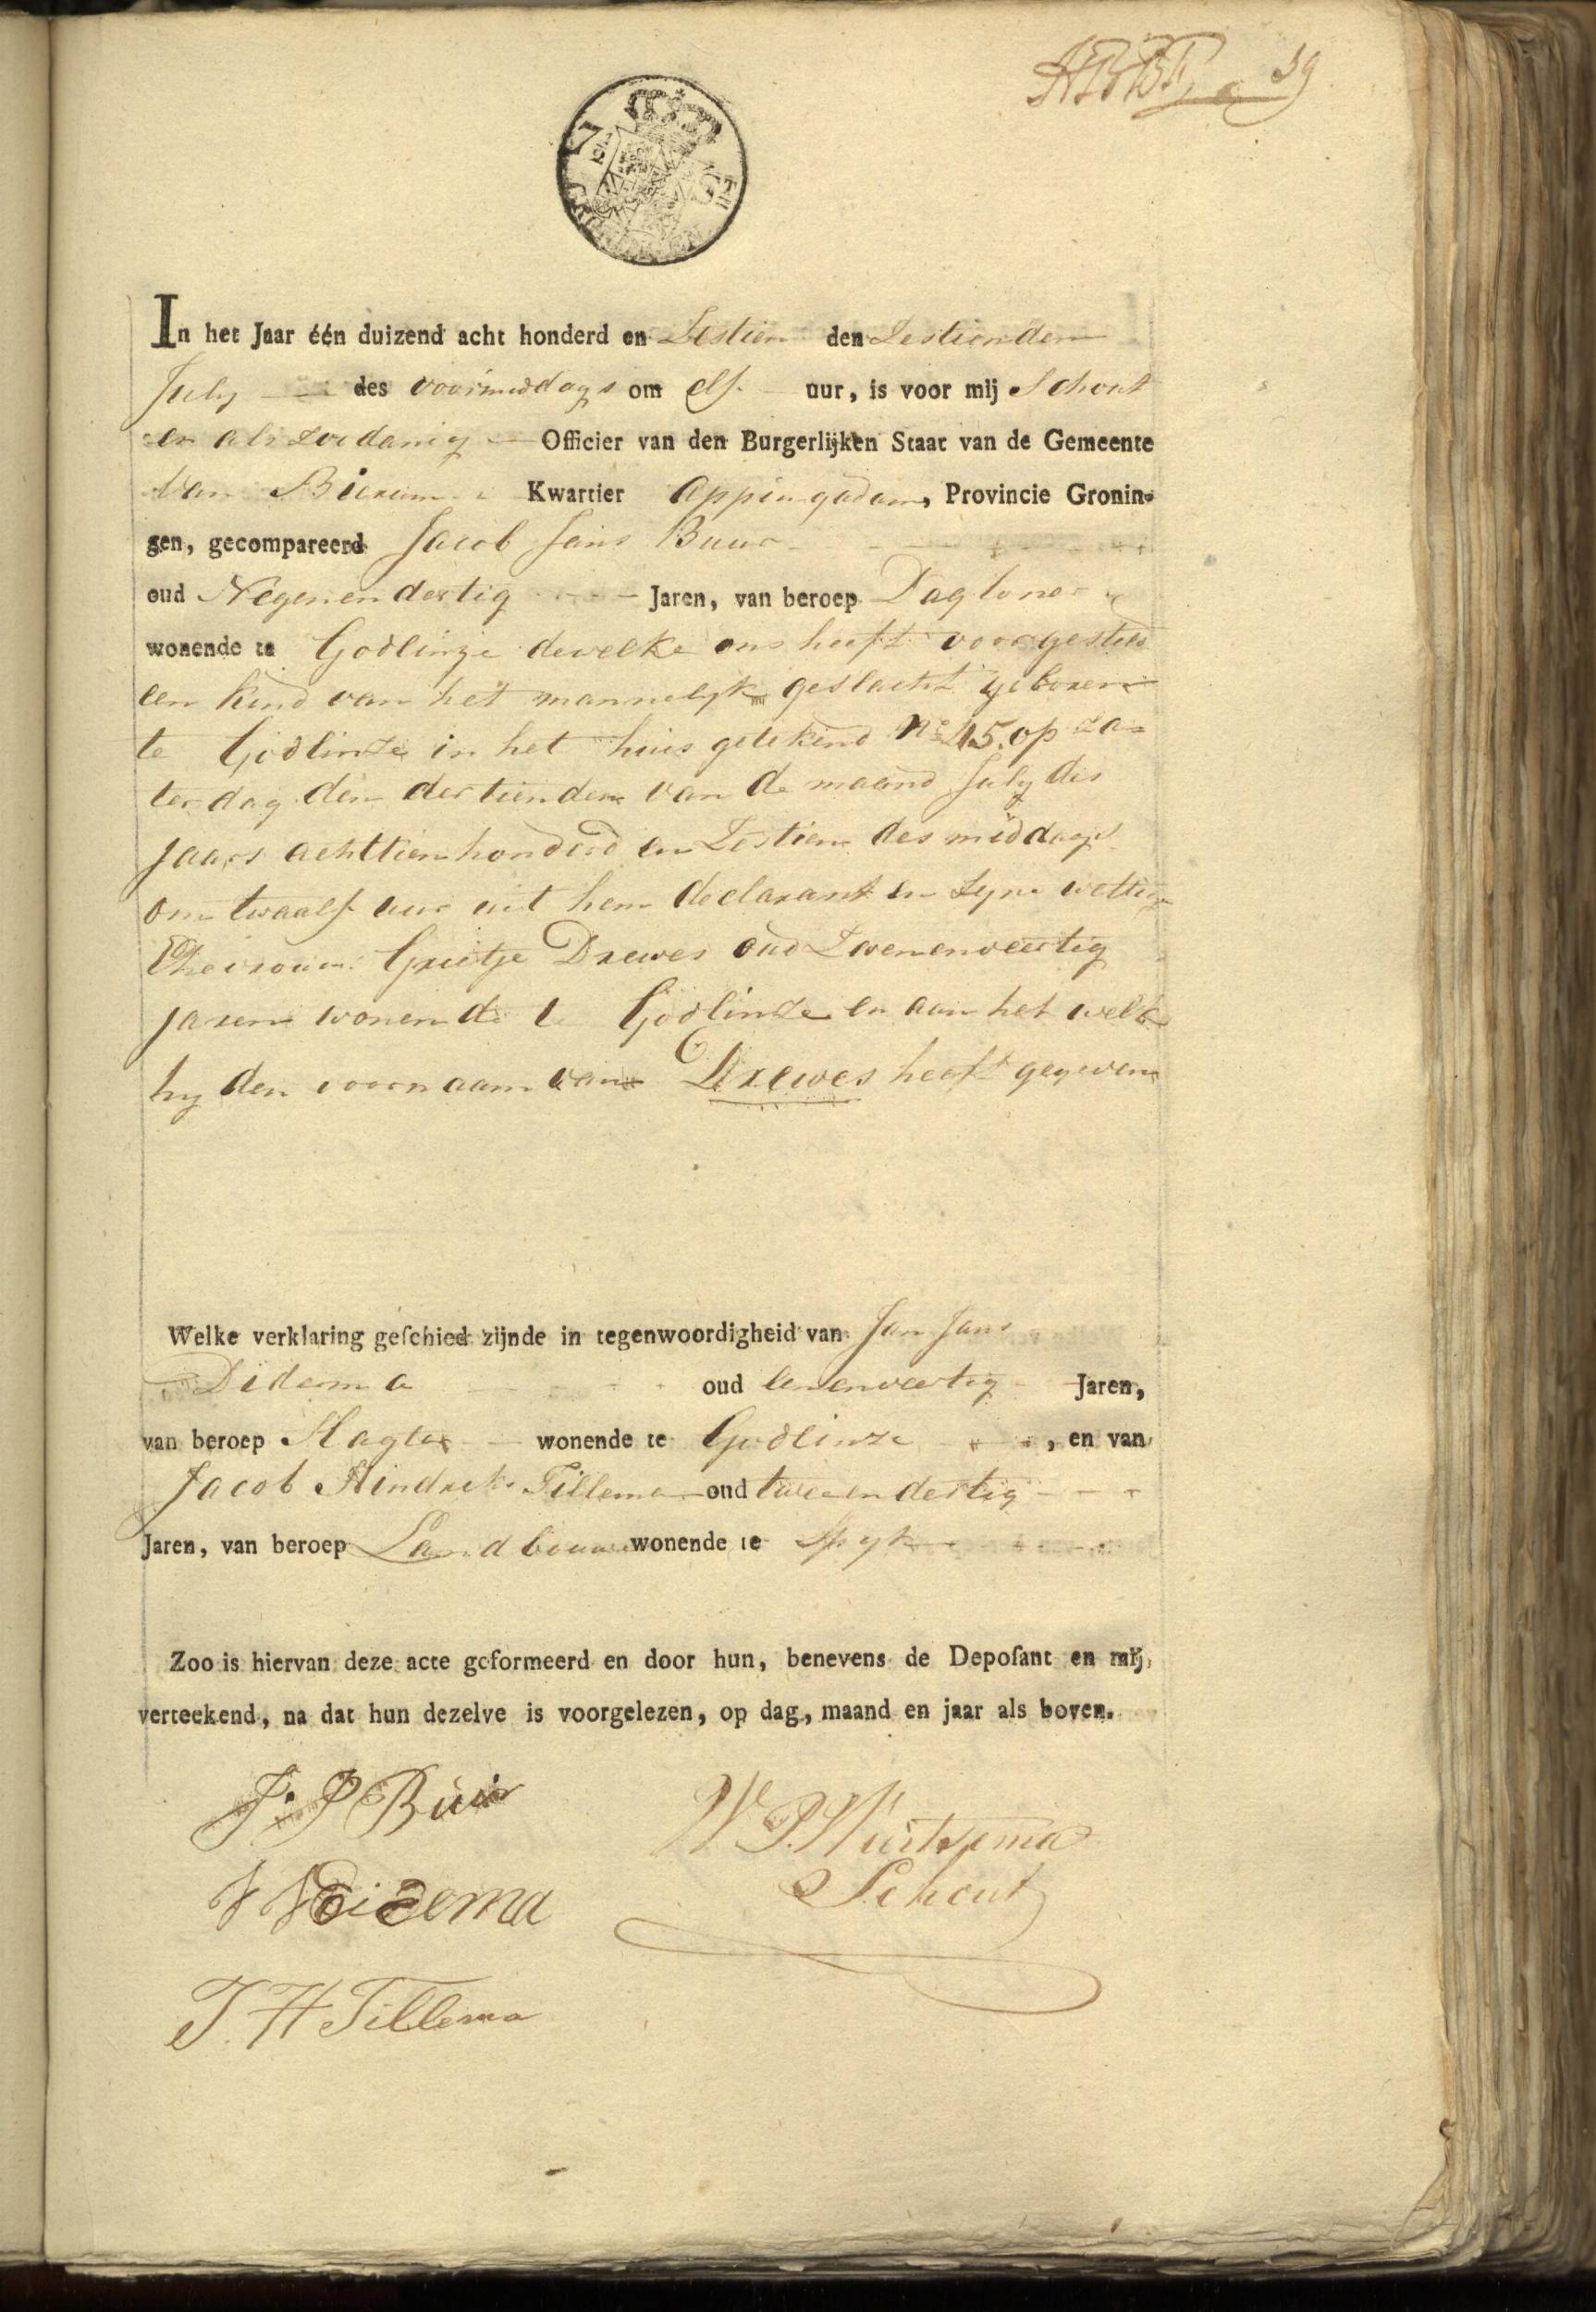 39
In het Jaar één duizend acht honderd en Sestien den Sestienden
July des voormiddags om elf uur, is voor mij Schout
en als zoodanig Officier van den Burgerlijken Staat van de Gemeente
van Bierum Kwartier Appingadam, Provincie Gronin-
gen, gecompareerd Jacob Jans Buur
oud Negenendertig Jaren, van beroep Dagloner
wonende te Godlinze dewelke ons heeft voorgesteld
een kind van het mannelyk geslacht geboren
te Godlinze in het huis getekend No 45 op Za-
terdag den dertienden van de maand July des
Jaars achttienhonderd en Sestien des middags
om twaalf uur uit hem declarant en Zyne wettige
Ehevrouw Grietje Drewes oud Tweenenveertig
Jaren wonende te Godlinze en aan het welke
hy den voornaam van Drewes heeft gegeven
Welke verklaring geschied zijnde in tegenwoordigheid van Jan Jans
Didema oud eenenveertig Jaren,
van beroep Slagter wonende te Godlinze, en van
Jacob Hindriks Tillema oud tweeendertig
Jaren, van beroep Landbouwer wonende te Spyk
Zoo is hiervan deze acte geformeerd en door hun, benevens de Deposant en mij,
verteekend, na dat hun dezelve is voorgelezen, op dag, maand en jaar als boven.
J. J Buir
W P Wiertsema
Schout
J H Tillema